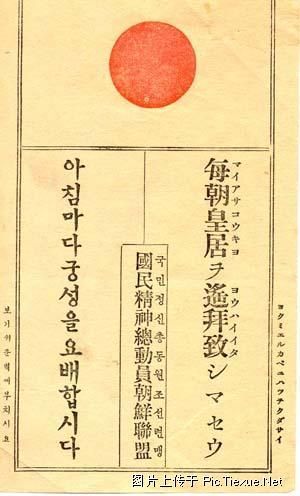 ヨクミエルカベニハツテクダサイ
マイアサコウキヨ ヨウハイイタ
每朝皇居ヲ遙拜致シマセウ
국민정신총동원조선련맹
國民精神總動員朝鮮聯盟
아침마다궁성을요배합시다
보기쉬운벽에부치시요
图片上传于 Pic.Tiexue.Net